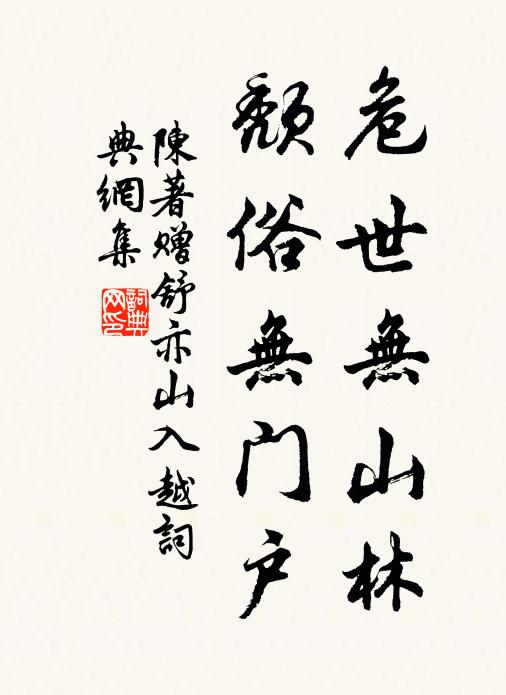 危世無山林
頹俗無门户
陳著赠舒亦山入越詞
典網集
詞典网印